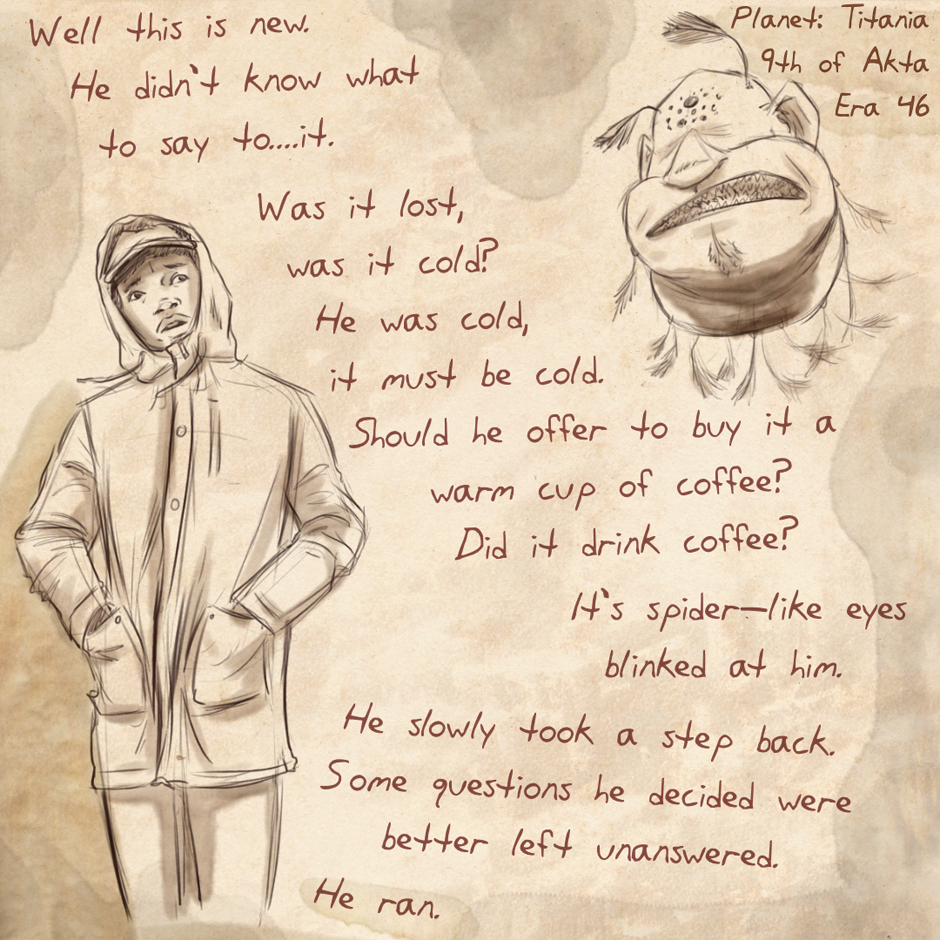 Well this is new.
He didn't know what
to say to....it.
Planet: Titania
9th of Akta
Era 46
Was it lost,
was it cold?
He was cold,
it must be cold.
Should he offer to buy it a
warm cup of coffee?
Did it drink coffee?
It's spider-like eyes
blinked at him.
He slowly took a step back.
Some questions he decided were
better left unanswered.
He ran.